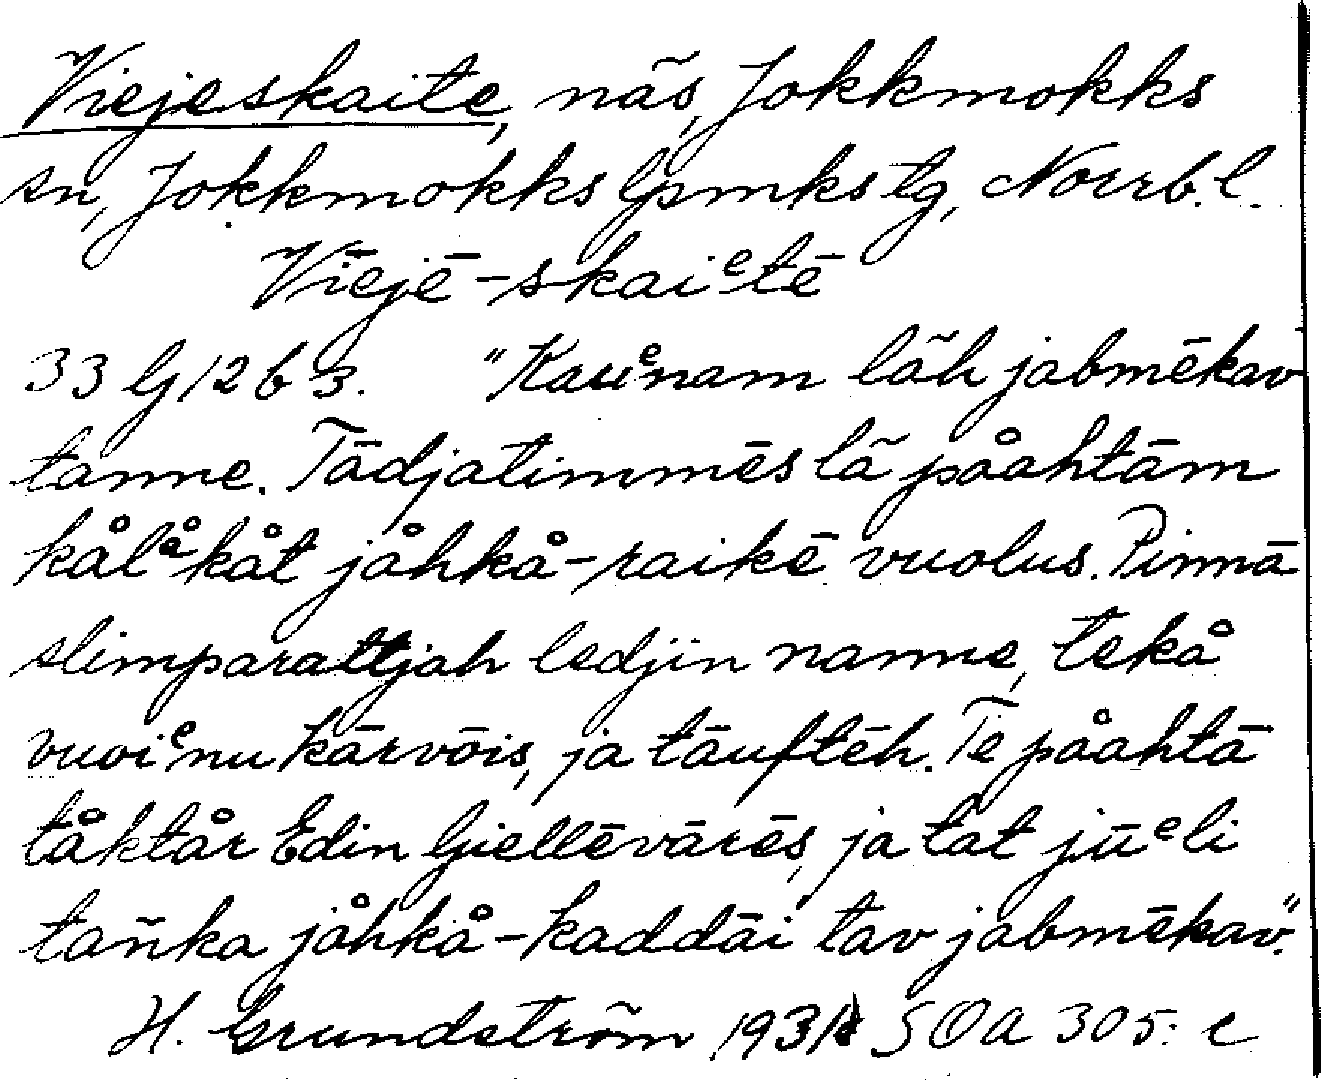 Viejeskaite, näs, Jokkmokks
sn, Jokkmokks lpmks tg, Norrb. l.
Viējē-skaiᵉtē
33 G 12 b 3. "Kauᵉnam läh jabmēkav
tanne. Tādjatimmēs lä påahtām
kålᵃ̊kåt jåhkå-raikē vuolus. Pinnā
slimparattjah ledjin nanne, tekå
vuoiᵉnu kārvōis, ja tāuftēh. Te påahtā
tåktår Edin Gielleväres, ja tat jūᵉli
tañka jåhkå-kaddāi tav jabmēkav."
H. Grundström 1931 SOA 305: c